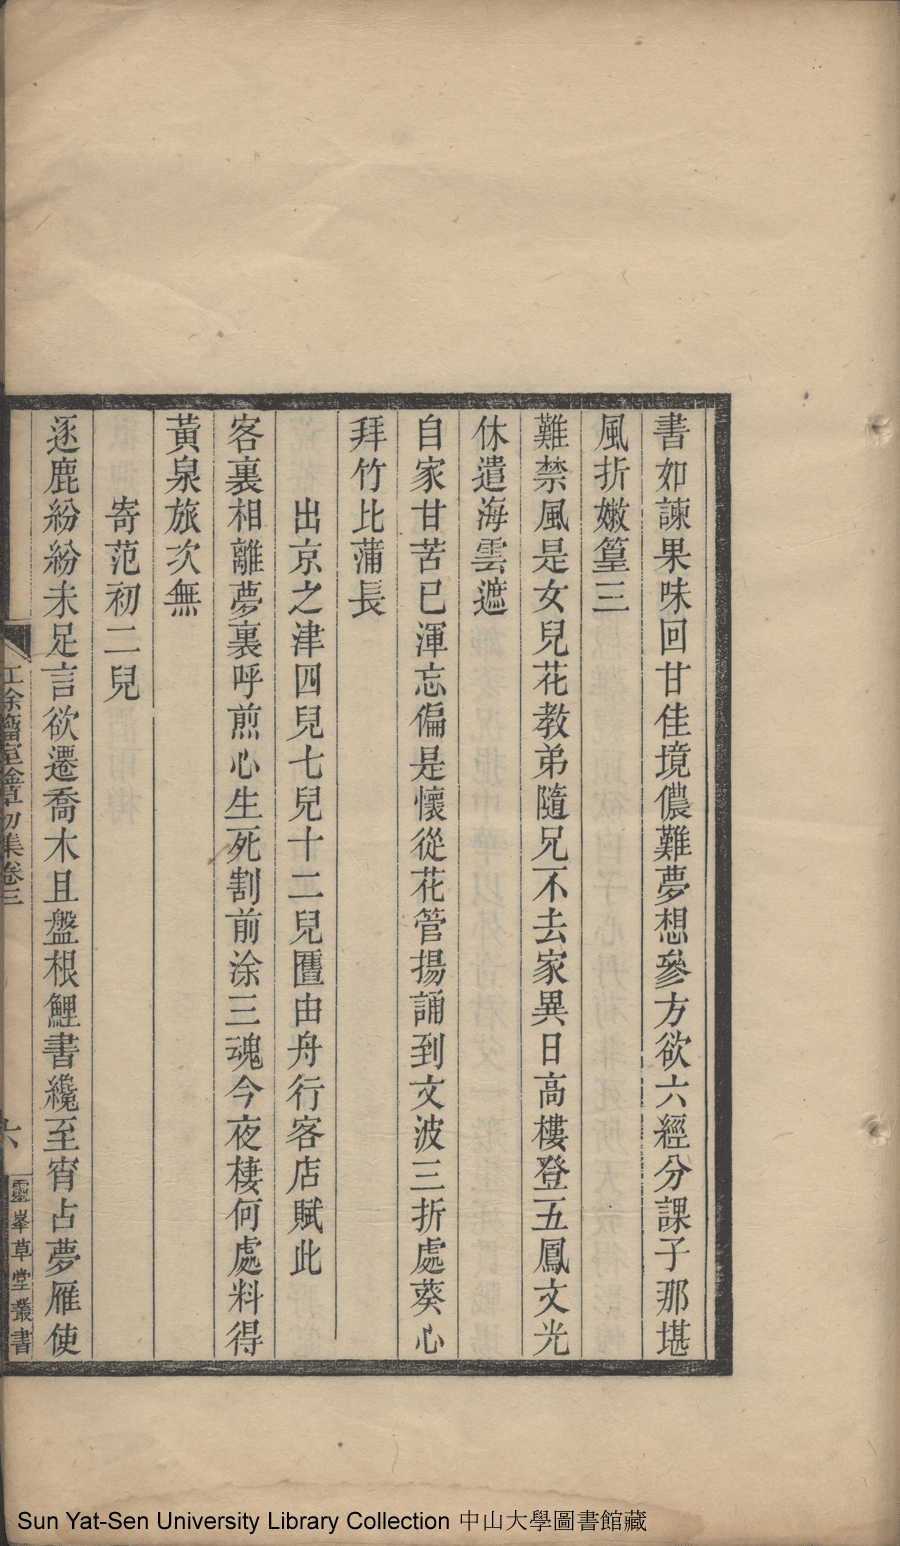 書如諫果味回甘佳境儂難夢想參方欲六經分課子那堪
風折嫩篁三
難禁風是女兒花教弟隨兄不去家異日高樓登五鳳文光
休遣海雲遮
自家甘苦已渾忘偏是懷從花管揚誦到文波三折處葵心
拜竹比蒲長
出京之津四兒七兒十二兒匶由舟行客店賦此
客裏相離夢裏呼煎心生死割前涂三魂今夜棲何處料得
黃泉旅次無
寄范初二兒
逐鹿紛紛未足言欲遷喬木且盤根鯉書纔至宵占夢雁使
集卷三
六
靈峯草堂叢書
Sun Yat-Sen University Library Collection 中山大學圖書館藏